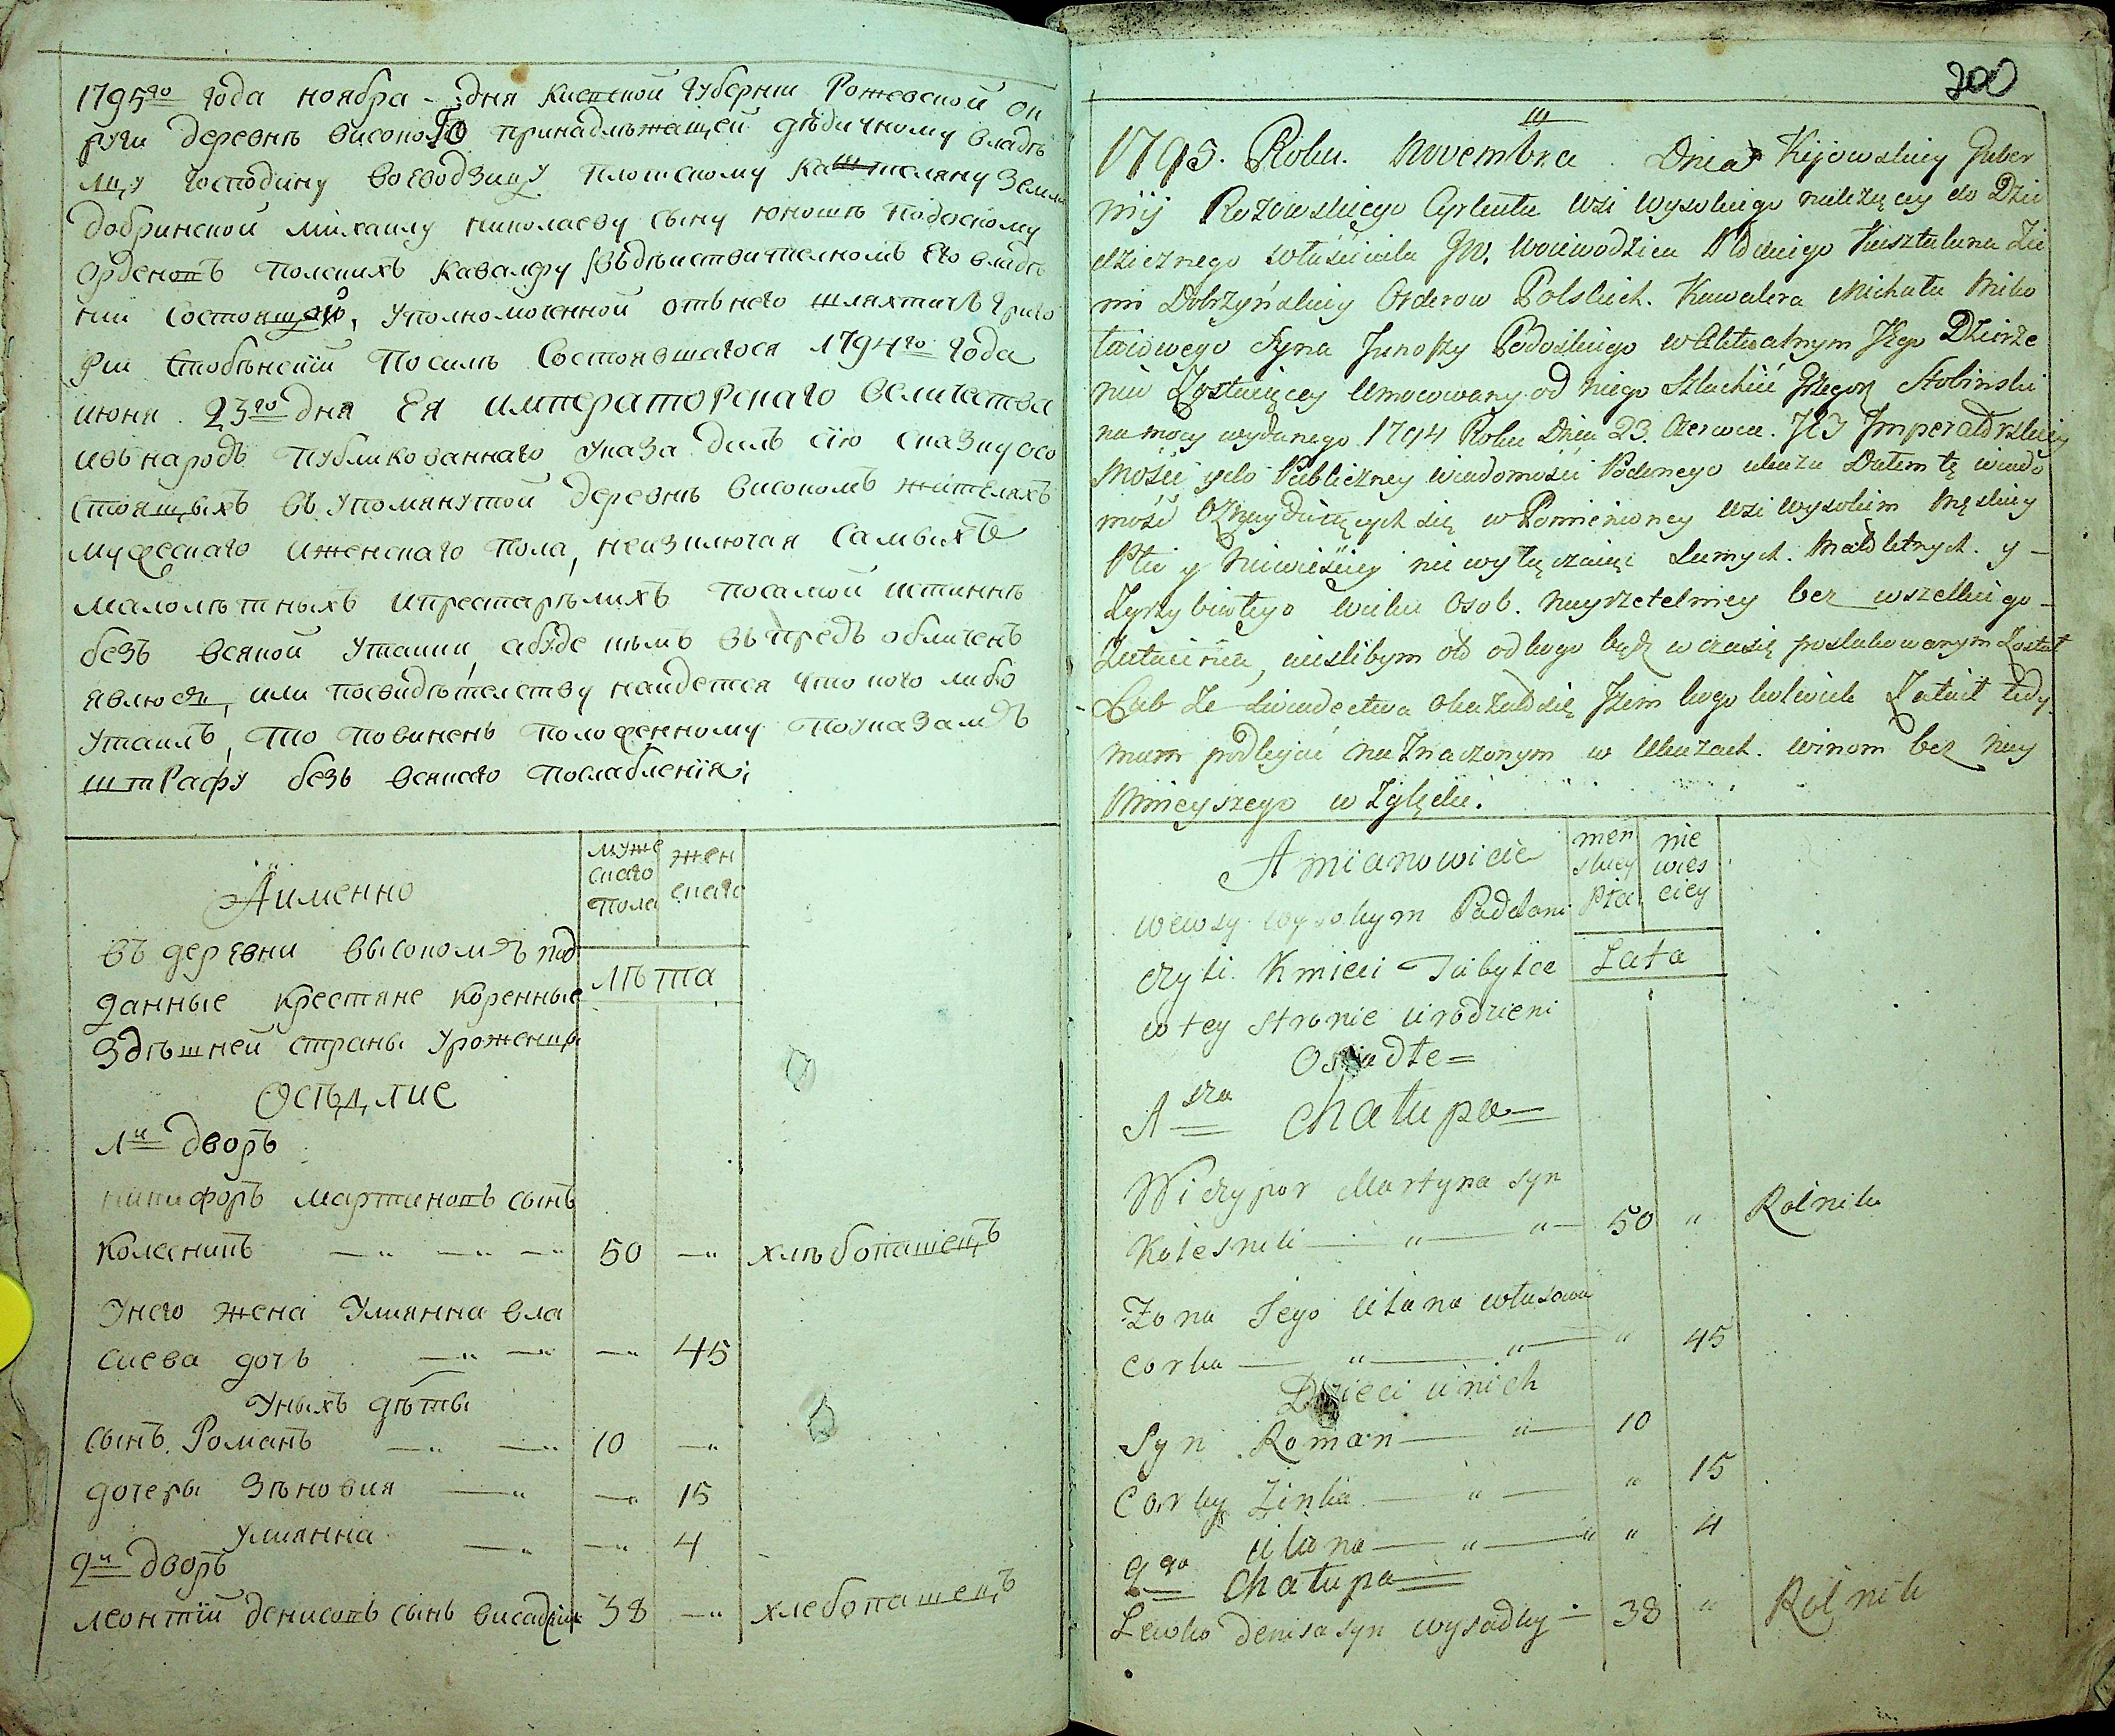 1795го года ноября - дня киевской губернии Рожевской ок
руги деревнѣ високого принадлѣжащей дѣдичному владѣ
лцу господину воеводзицу плоцкому каштеляну земли
добринской михаилу николаеву сыну юношѣ Подоскому
Орденовъ полскихъ кавалѣру въдѣиствителномъ его владѣ
нии состоящей, уполномоченной отънего шляхтичъ григо
рии стобѣнскiй посилѣ состоявшагося 1794го года
июня 23го дня Ея императорскаго величества
ивънародъ публикованнаго указа далъ сiю сказку осо
стоящыхъ въ упомянутой деревнѣ високомъ жителяхъ
мужескаго иженскаго пола, неизключая самыхъ
малолѣтныхъ ипрестарѣлихъ посамой истиннѣ
безъ всякой утаики, абуде кѣмъ въпредь обличенъ
явлюся, или посвидѣтелству найдется что кого либо
утаилъ, то повиненъ положенному поуказамъ
штрафу безъ всякаго послабленiя;
Аименно
муже
скаго
пола
жен
скаго
въ деревни високомъ под
данные крестяне коренные
здѣшней страны уроженцы
лѣта
Осѣдлие
1й дворъ
никифоръ мартиновъ сынъ
колесникъ 50 хлѣбопашецъ
Унего жена Улиянна вла
сиева дочь 45
Уныхъ дѣты
сынъ Романъ 10
дочеры Зѣновия 15
улиянна 4
2й дворъ
леонтiй денисовъ сынъ висадкiи 38 хлебопашецъ
200
1795. Roku. Novembra Dnia Kijowskiey Guber
nij Rozowskiego Cyrkułu wsi wysokiego należącey do Dzie
dzicznego właściciela JW. Woiewodzica Płockiego Kasztelana Zie
mi Dobrzyńskiey Orderow Polskich. Kawalera Michała Miko
łaiowego Syna Junoszy Podoskiego w Aktualnym Jego Dzierże
niu Zostaiącey Umocowany od niego Szlachcic Grzegorz Stobinski
na mocy wydanego 1794 Roku Dnia 23. Czerwca. JEJ Imperatorskiey
Mości y do Publiczney wiadomości Podanego ukazu Dałem tę wiado
mość Oznayduiących się w Pomienioney wsi wysokim męskiey
Płci y Niewieściey nie wyłączaiąc samych Małoletnych. y -
Zgrzybiałego wieku Osob. nayrzetelniey bez wszelkiego
Zataienia, ieślibym od kogo bądź w czasie poszlakowanym Został
Lub Ze świadectwa okazało się Jżem kogo kolwiek Zataił tedy
mam podlegać na Znaczonym w Ukazach. winom bez nay
Mnieyszego wzglęDu.
A mianowicie
men
skiey
Płci
nie
wies
ciey
wewsy wysokym Paddani
czyli Kmieci Tubylce
w tey stronie urodzieni
Lata
Osiadłe
A sza Chałupa
Wiczypor Martyna syn
Kolesnik 50 " Rolnik
Zona Jego Ulana własowa
corka " 45
Dzieci u nich
Syn Roman 10
Corky Zinka " 15
Ulana " 4
2ga Chałupa
Lewko denisa syn wysadky 38 " Rolnik